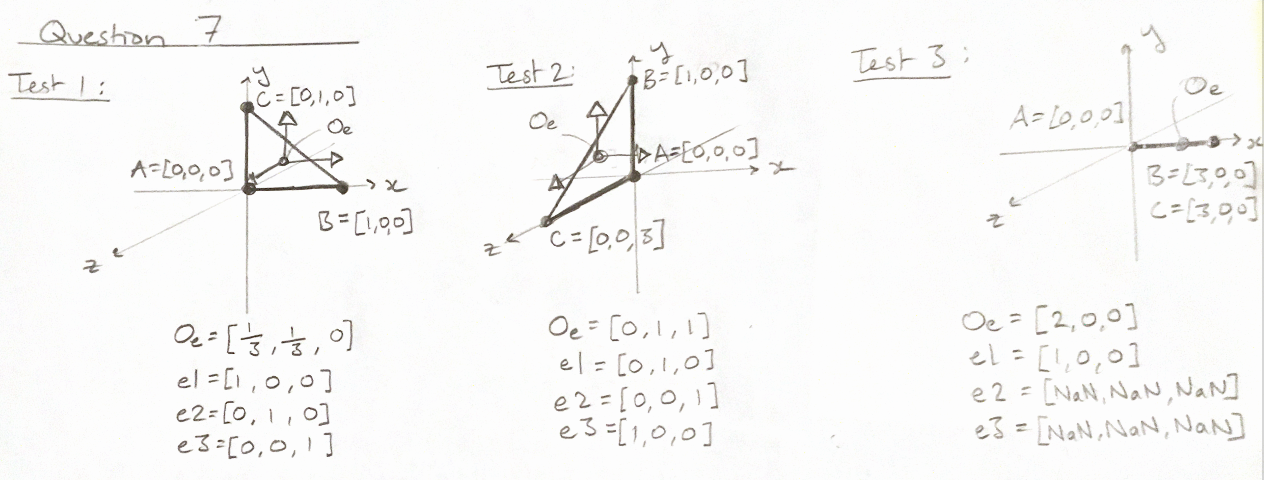 Question 7
Test 1:
y
C=[0,1,0]
Oe
A=[0,0,0]
x
B=[1,0,0]
z
Oe=[1/3, 1/3, 0]
e1=[1, 0, 0]
e2=[0, 1, 0]
e3=[0, 0, 1]
Test 2:
y
B=[1,0,0]
Oe
A=[0,0,0]
x
z
C=[0,0,3]
Oe=[0, 1, 1]
e1=[0, 1, 0]
e2=[0, 0, 1]
e3=[1, 0, 0]
Test 3:
y
Oe
A=[0,0,0]
x
B=[3,0,0]
C=[3,0,0]
z
Oe=[2,0,0]
e1=[1,0,0]
e2=[NaN,NaN,NaN]
e3=[NaN,NaN,NaN]